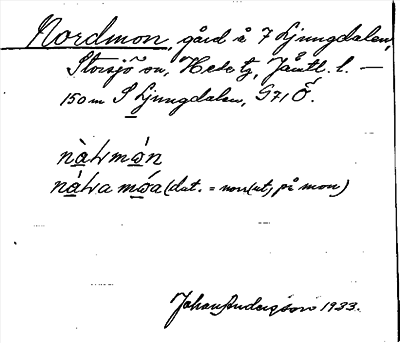 Nordmon, gård å 7 Ljungdalen,
Storsjö sn, Hede tg, Jämtl. l. —
150 m S Ljungdalen, G71 Ö.
nàḷmón
nàḷa móa (dat. = norr(ut) på mon)
Johan Anderson 1933.